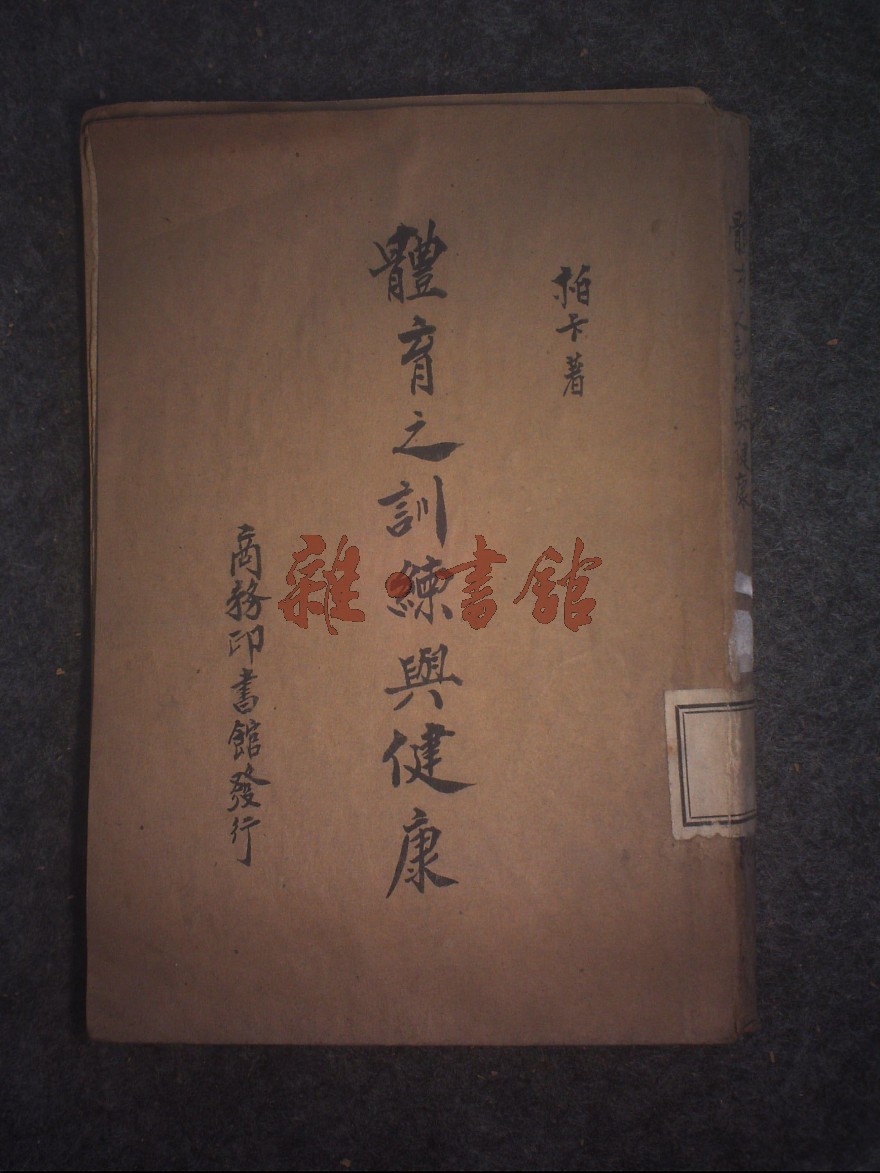 柏卡著
體育之訓練與健康
商務印書館發行
體育之訓練與健康
雜·書館